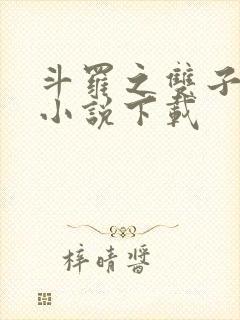 斗羅之雙子
小說下載
梓晴醬